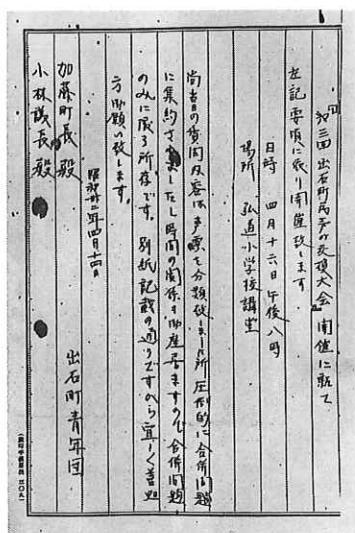 第三回出石町民声の交換大会」開催に就て
左記要項に依り開催致します
日時 四月十六日午後八時
場所 弘道小学校講堂
尚当日の質問内容は声票を分類致しました所圧倒的に合併問題
に集約されましたし時間の関係も御座居ますので合併問題
のみに限る所存です。別紙記載の通りですから宜しく善処
方御願い致します。
昭和卅二年四月十四日
出石町青年団
加藤町長殿
小林議長殿